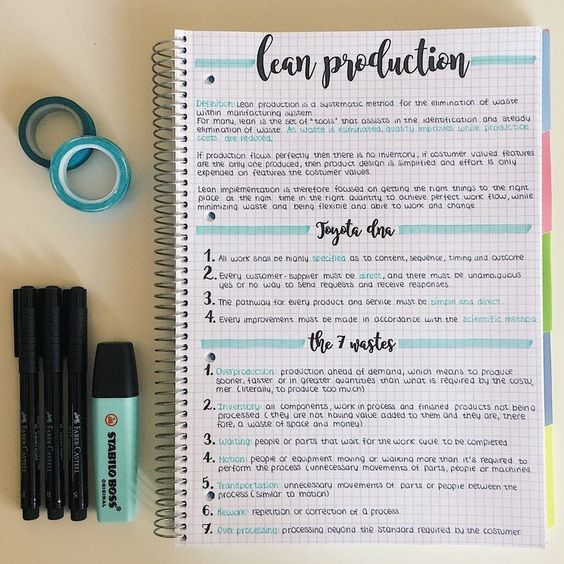 lean production
Definition: Lean production is a systematic method for the elimination of waste
within manifacturing system.
For many, lean is the set of "tools" that assists in the identification and steady
elimination of waste. As waste is eliminated, quality improves while production
costs are reduced.
If production flows perfectly then there is no inventory, if costumer valued features
are the only one produced, then product design is simplified and effort is only
expended on features the costumer values.
Lean implementation is therefore focused on getting the right things to the right
place at the right time in the right quantity to achieve perfect work flow, while
minimizing waste and being flexible and able to work and change
Toyota dna
1. All work shall be highly specified as to content, sequence, timing and outcome
2. Every customer-supplier must be direct, and there must be unambiguous
yes or no way to send requests and receive responses
3. The pathway for every product and service must be simple and direct
4. Every improvement must be made in accordance with the scientific method
the 7 wastes
1. Overproduction: production ahead of demand, which means to produce
sooner, faster or in greater quantities than what is required by the costu,
mer (literally, to produce too much)
2. Inventory: all components, work in process and finished products not being
processed (they are not having value added to them and they are, there
fore, a waste of space and money)
3. Waiting: people or parts that wait for the work cycle to be completed
4. Motion: people or equipment moving or walking more than it's required to
perform the process (unnecessary movements of parts, people or machines
5. Transportation: unnecessary movements of parts or people between the
process (similar to motion)
6. Rework: repetition or correction of a process
7. Over processing: processing beyond the standard required by the costumer
FABER-CASTELL
FABER-CASTELL
FABER-CASTELL
S
STABILO BOSS
ORIGINAL